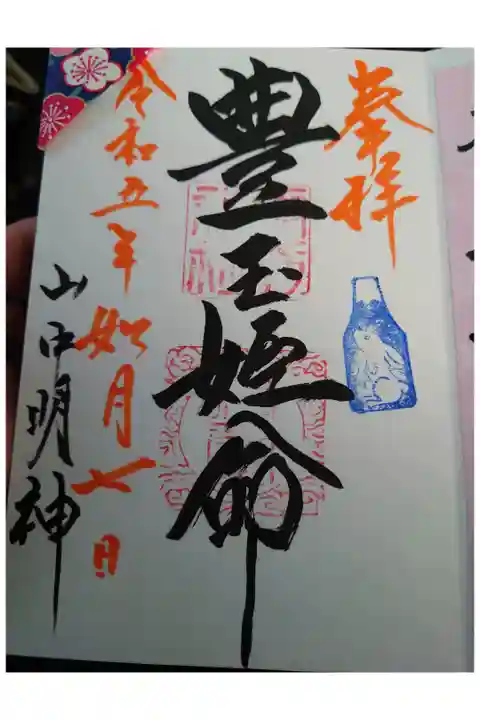 奉拝
豊玉姫命
令和五年如月七日
山口明神